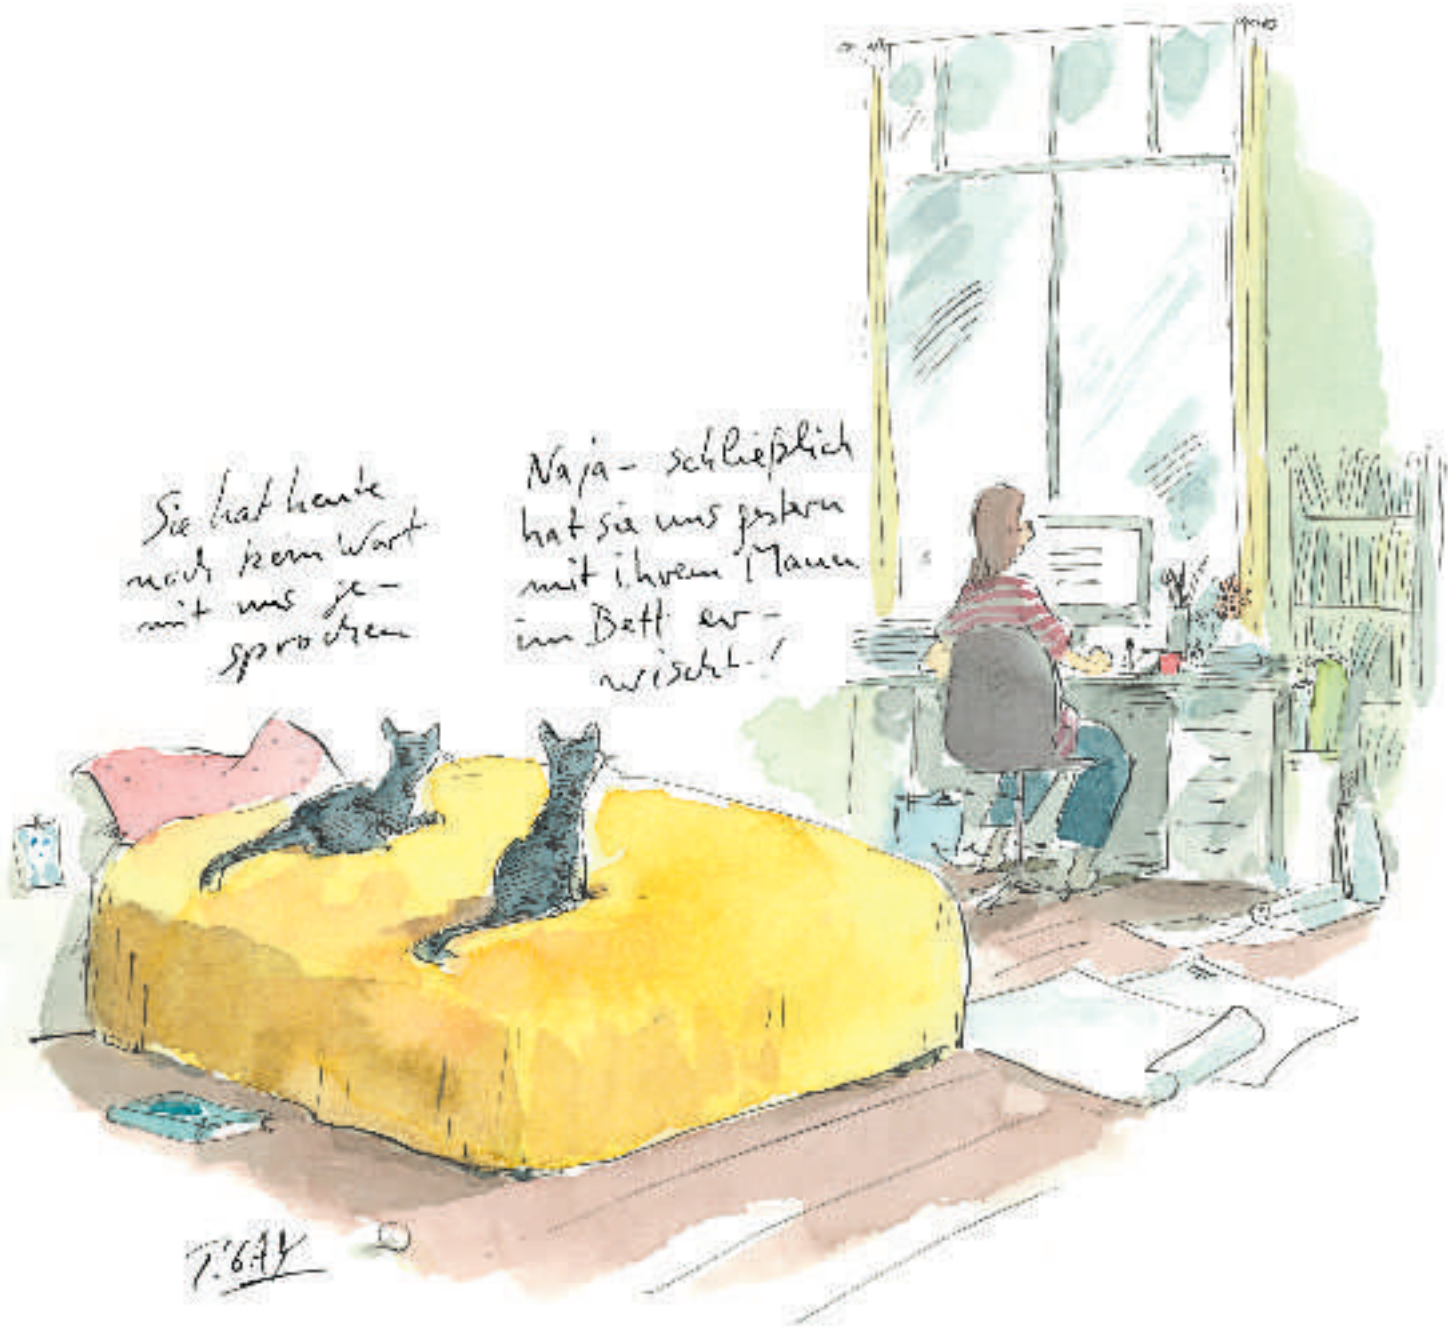 Sie hat heute
noch kein Wort
mit uns ge-
sprochen
Naja - schließlich
hat sie uns gestern
mit ihrem Mann
im Bett er-
wischt!
T.GAY